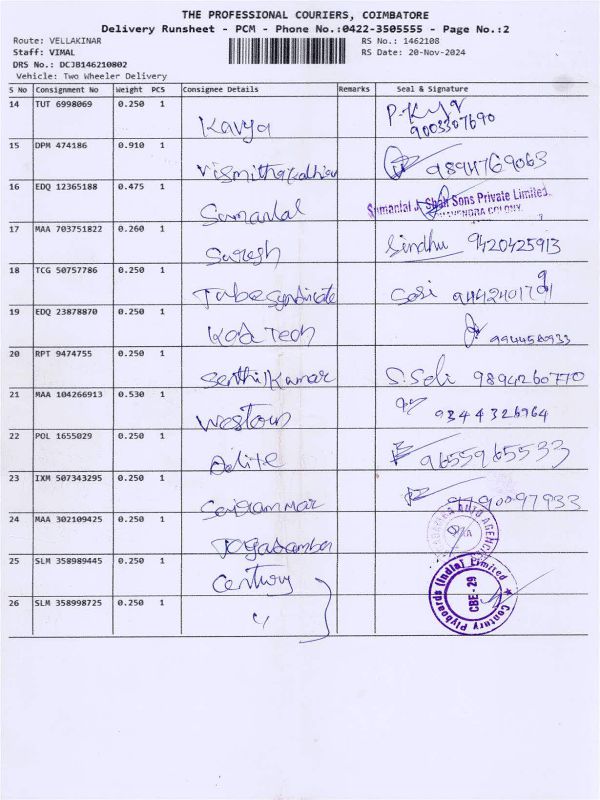 THE PROFESSIONAL COURIERS, COIMBATORE
Delivery Runsheet - PCM - Phone No.:0422-3505555 - Page No.:2
Route: VELLAKINAR RS No.: 1462108
Staff: VIMAL RS Date: 20-Nov-2024
DRS No.: DCJB146210802
Vehicle: Two Wheeler Delivery
S No Consignment No Weight PCS Consignee Details Remarks Seal & Signature
14 TUT 6998069 0.250 1
Kavya 9003307690
15 DPM 474186 0.910 1
9894769063
16 EDQ 12365188 0.475 1
Sumanlal J. Shah Sons Private Limited.
Sumanlal
17 MAA 703751822 0.260 1
Suresh Sindhu 9420425913
18 TCG 50757786 0.250 1
Tube syndicate
19 EDQ 23878870 0.250 1
Tech
20 RPT 9474755 0.250 1
Senthil Kumar 9894260770
21 MAA 104266913 0.530 1
Western 9344326964
22 POL 1655029 0.250 1
Delite 9655965533
23 IXM 507343295 0.250 1
24 MAA 302109425 0.250 1
AUTO AGENC
25 SLM 358989445 0.250 1
Century
Century Plyboards (India) Limited
CBE - 29
26 SLM 358998725 0.250 1
"